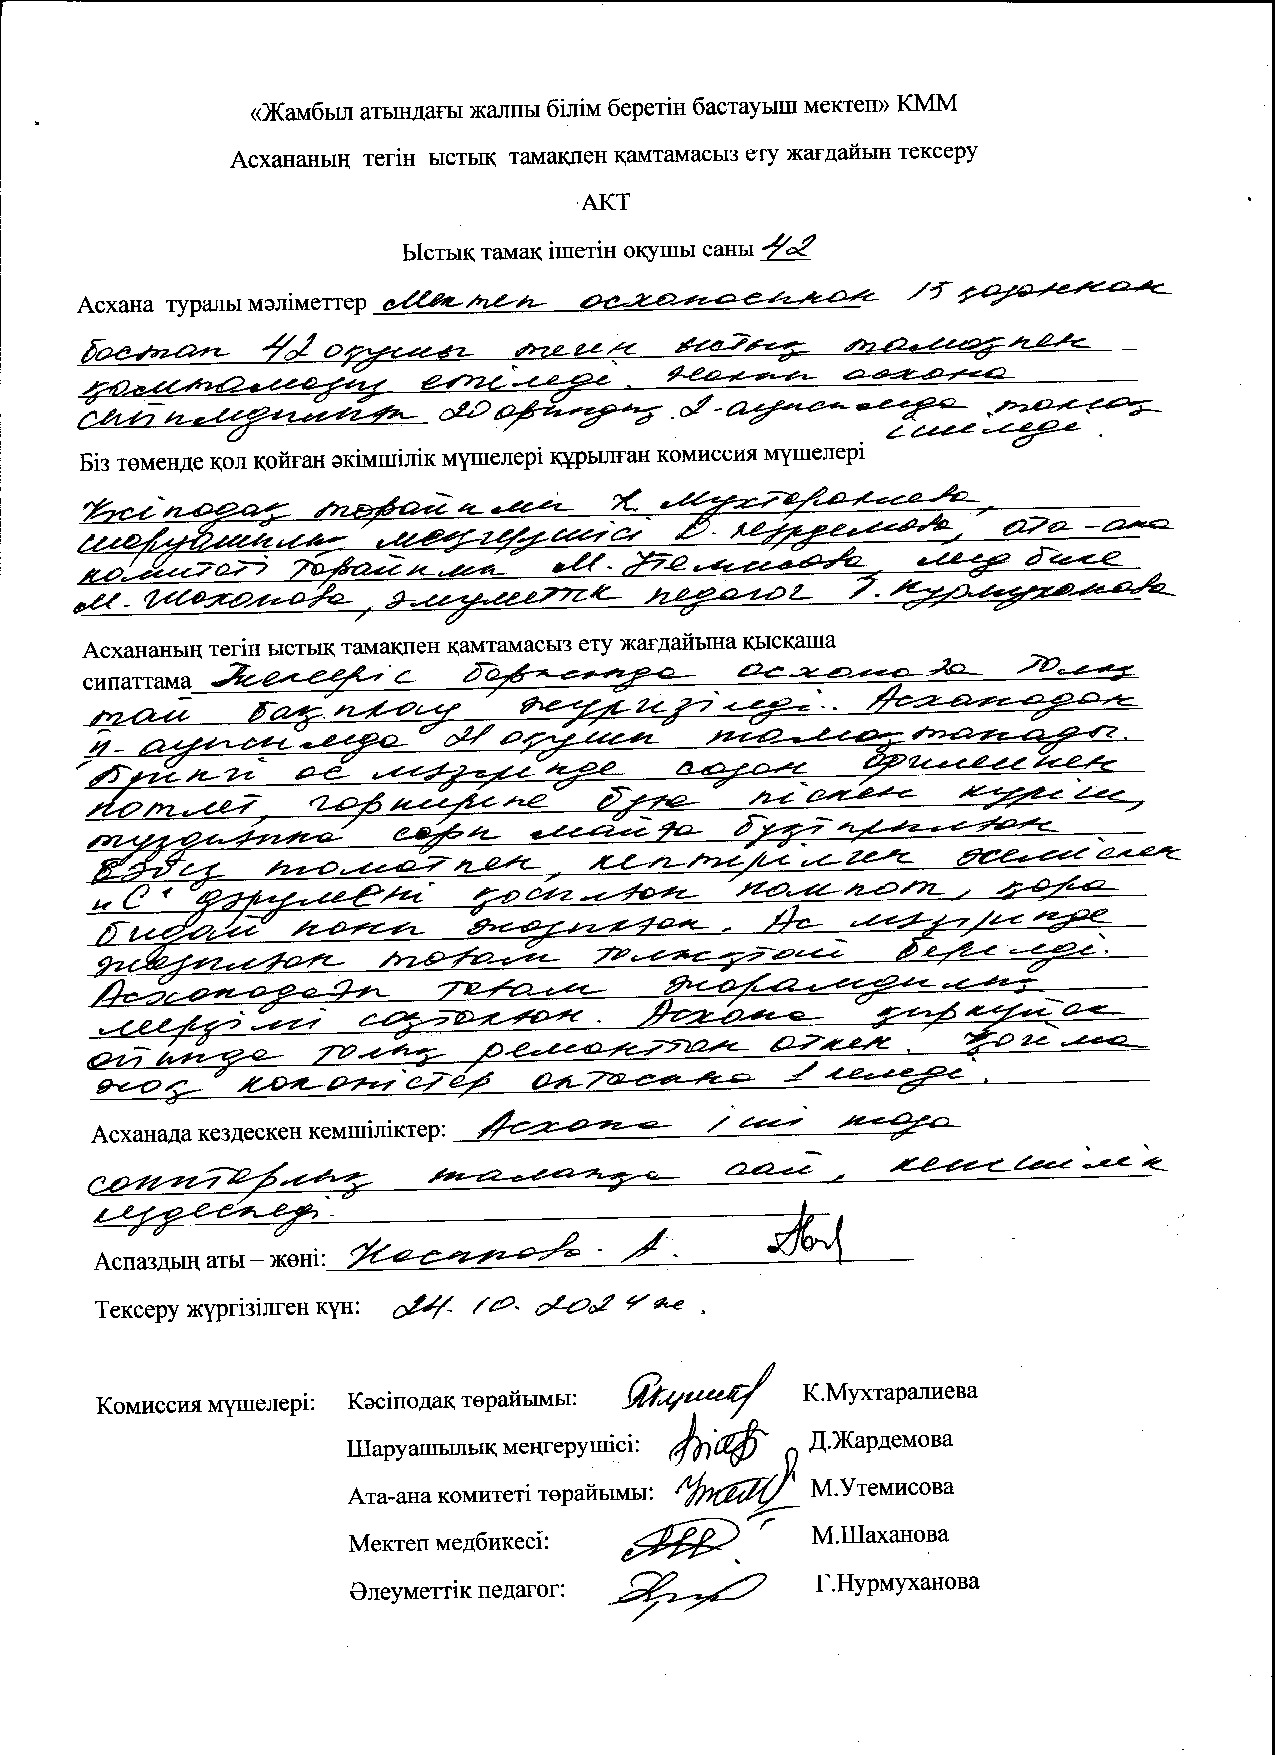 «Жамбыл атындағы жалпы білім беретін бастауыш мектеп» КММ
Асхананың тегін ыстық тамақпен қамтамасыз ету жағдайын тексеру
АКТ
Ыстық тамақ ішетін оқушы саны 42
Асхана туралы мәліметтер Мектеп асханасынан 15 қазаннан
бастап 42 оқушы тегін ыстық тамақпен
қамтамасыз етіледі. Жалпы асхана
20 орындық 2-ауысымда тамақ
ішеледі.
Біз төменде қол қойған әкімшілік мүшелері құрылған комиссия мүшелері
Кәсіподақ төрайымы К. Мухтаралиева,
шаруашылық меңгерушісі Д. Жардемова, ата-ана
комитеті төрайымы М. Утемисова, медбике
М. Шаханова, әлуметтік педагог Г. Нурмуханова
Асхананың тегін ыстық тамақпен қамтамасыз ету жағдайына қысқаша
сипаттама Тексеріс барысында асханаға толық
тай бақылау жүргізілді. Асханадан
II-ауысымда 21 оқушы тамақтанады.
Бүгінгі ас мәзірінде сазан
котлет, гарниріне буға піскен күріш,
тұздығына сары майға бұқтырылған
томатпен, кептірілген жемістен
"С" дәрумені қосылған компот, қара
бидай наны жазылған. Ас мәзірінде
жазылған тағам толықтай берілді.
Асханадағы тағам жарамдылық
мерзімі сақталған. Асхана қыркүйек
айында толық ремонттан өткен. Қойма
жоқ көкөністер аптасына 1 келеді.
Асханада кездескен кемшіліктер: Асхана іші таза
санитарлық талапқа сай, кемшілік
кездеспеді.
Аспаздың аты – жөні: А.
Тексеру жүргізілген күн: 24. 10. 2024 ж.
Комиссия мүшелері: Кәсіподақ төрайымы: К.Мухтаралиева
Шаруашылық меңгерушісі: Д.Жардемова
Ата-ана комитеті төрайымы: М.Утемисова
Мектеп медбикесі: М.Шаханова
Әлеуметтік педагог: Г.Нурмуханова